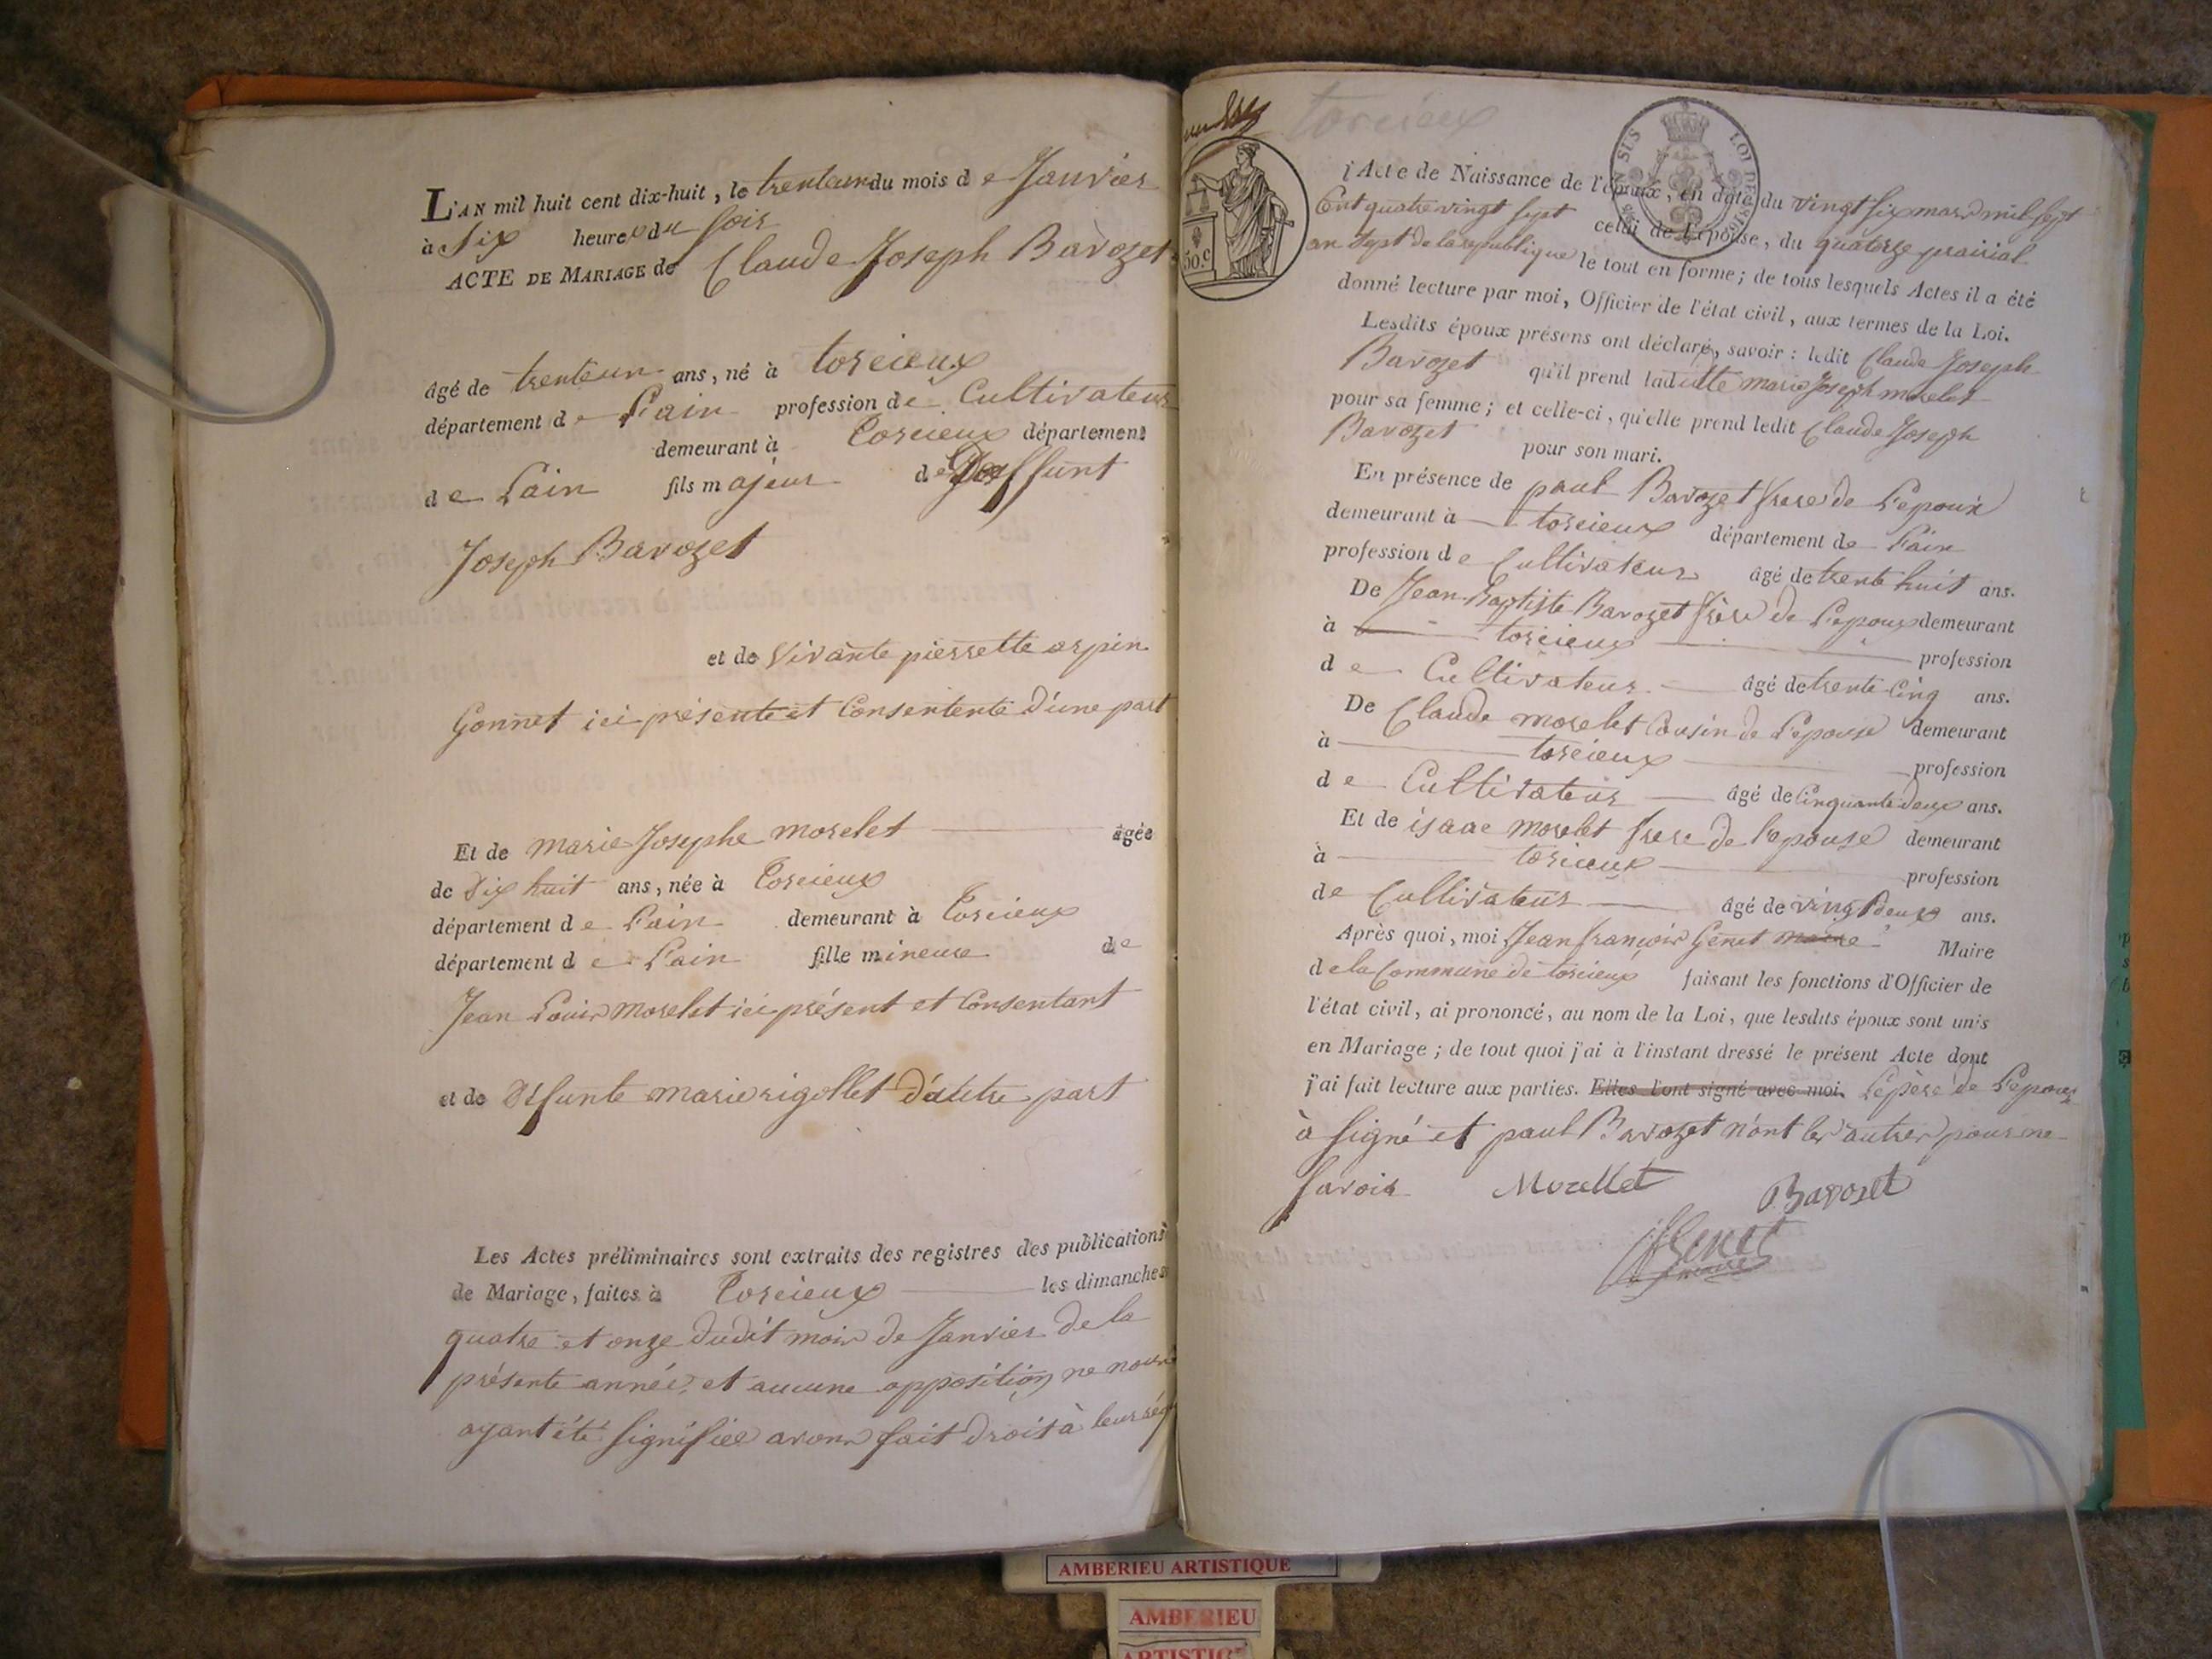 L'AN mil huit cent dix-huit, le trenteun du mois de Janvier
à Six heures du soir
ACTE DE MARIAGE de Claude Joseph Barozet
âgé de trenteun ans, né à torcieux
département de L'ain profession de Cultivateur
demeurant à torcieux département
de L'ain fils majeur de Deffunt
Joseph Barozet
et de vivante pierrette arpin
Gonnet ici présente et Consentente d'une part
Et de marie Josephe morelet âgée
de Dix huit ans, née à torcieux
département de L'ain demeurant à torcieux
département de L'ain fille mineure de
Jean Louis morelet ici présent et Consentant
et de Défunte marie rigollet d'autre part
Les Actes préliminaires sont extraits des registres des publications
de Mariage, faites à torcieux les dimanches
quatre et onze dudit mois de Janvier de la
présente année, et aucune opposition ne nous
ayant été signifiée avons fait droit à leur
torcieux
50.c
l'Acte de Naissance de l'époux, en date du vingt six mars mil sept
Cent quatre vingt sept celui de l'épouse, du quatorze prairial
an sept de la republique le tout en forme; de tous lesquels Actes il a été
donné lecture par moi, Officier de l'état civil, aux termes de la Loi.
Lesdits époux présens ont déclaré, savoir: ledit Claude Joseph
Barozet qu'il prend laditte marie Joseph morelet
pour sa femme; et celle-ci, qu'elle prend ledit Claude Joseph
Barozet pour son mari.
En présence de paul Barozet frere de L'epoux
demeurant à torcieux département de L'ain
profession de Cultivateur âgé de trente huit ans.
De Jean-Baptiste Barozet frère de L'epoux demeurant
à torcieux profession
de Cultivateur âgé de trente Cinq ans.
De Claude morelet Cousin de L'epouse demeurant
à torcieux profession
de Cultivateur âgé de Cinquante deux ans.
Et de isaac morelet frere de l'epouse demeurant
à torcieux profession
de Cultivateur âgé de vingt deux ans.
Après quoi, moi Jean françois Genet maire Maire
de la Commune de torcieux faisant les fonctions d'Officier de
l'état civil, ai prononcé, au nom de la Loi, que lesdits époux sont unis
en Mariage; de tout quoi j'ai à l'instant dressé le présent Acte dont
j'ai fait lecture aux parties. Elles l'ont signé avec moi. Le père de L'epouse
à signé et paul Barozet n'ont les autres pour ne
savoir Morellet Barozet
Genet
maire
AMBERIEU ARTISTIQUE
AMBERIEU